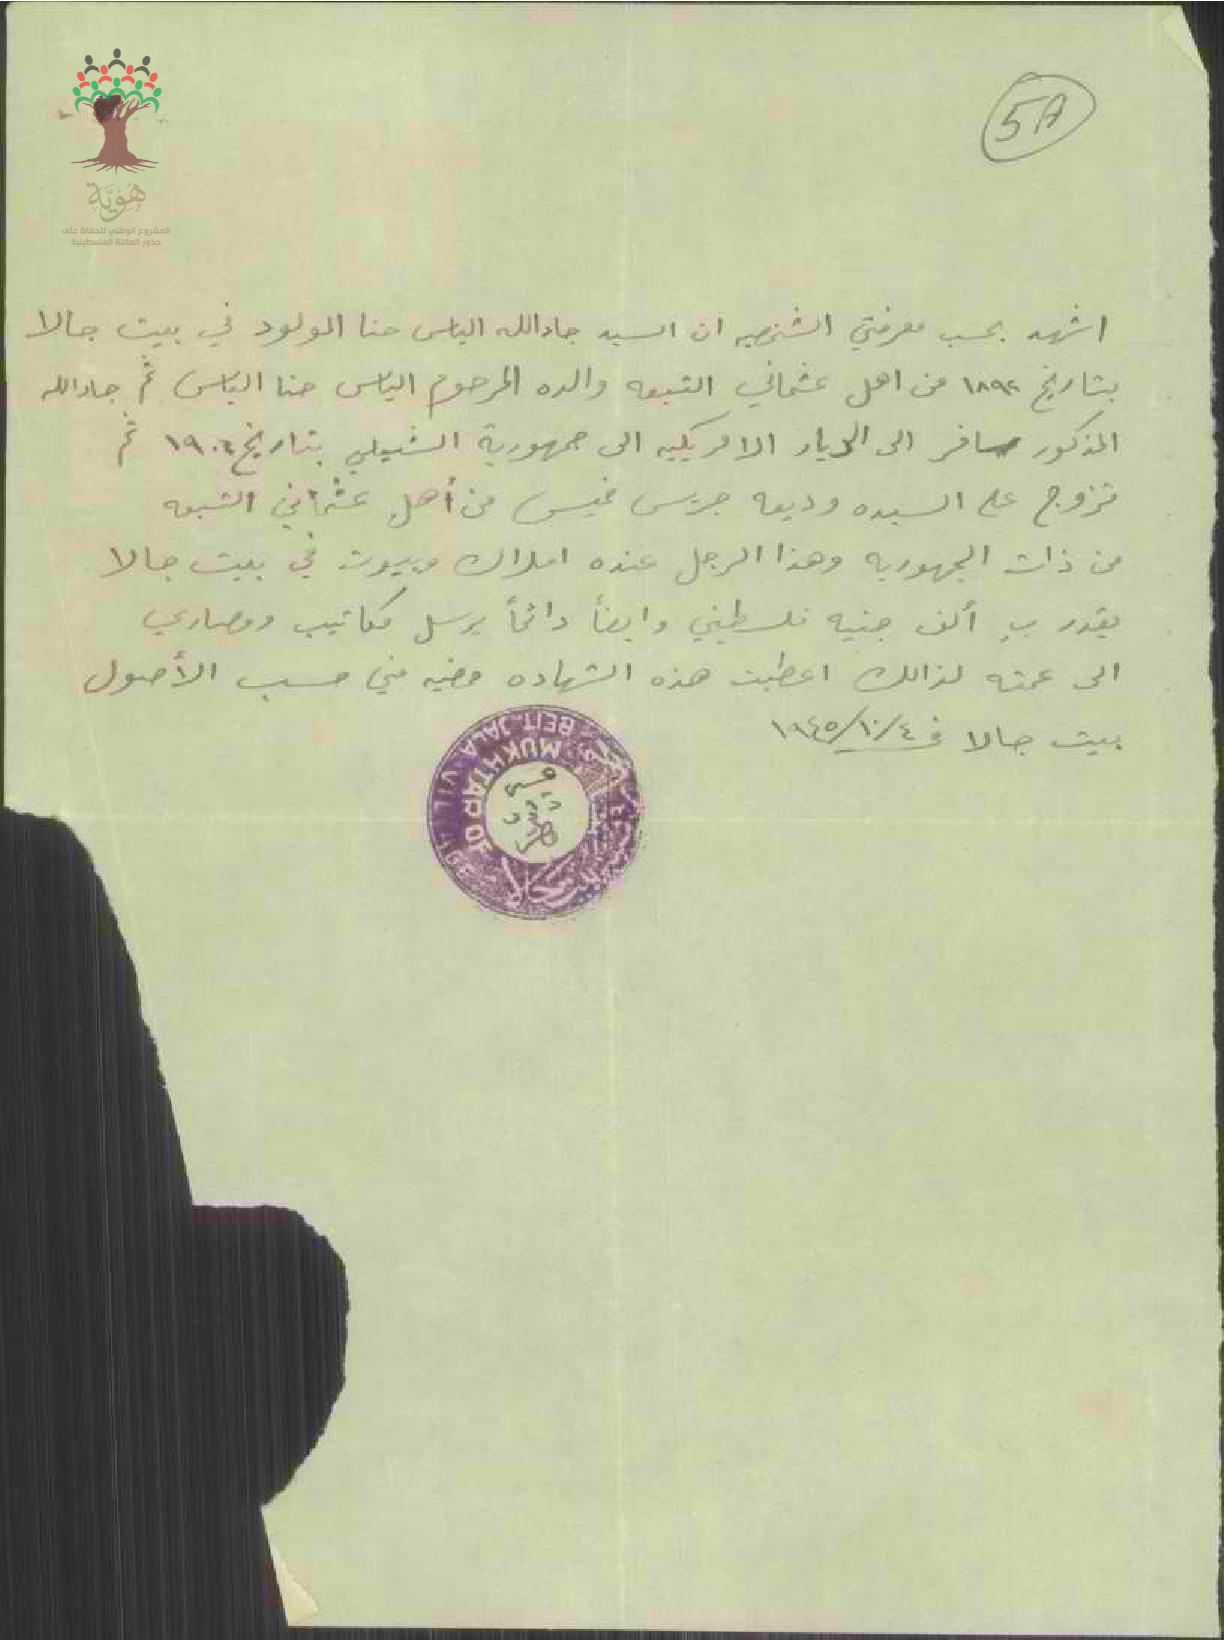 5A
هُوِيَّة
المشروع الوطني للحفاظ على
جذور العائلة الفلسطينية
اشهد بحسب معرفتي الشخصيه ان السيد جادالله الياس حنا المولود في بيت جالا
بتاريخ ١٨٩٢ من اهل عثماني التبعه والده المرحوم الياس حنا الياس ثم جادالله
المذكور سافر الى الديار الامريكيه الى جمهورية التشيلي بتاريخ ١٩٠٤ ثم
تزوج على السيده وديعه جريس خميس من أهل عثماني التبعه
من ذات الجمهوريه وهذا الرجل عنده املاك وبيوت في بيت جالا
يقدر ب ألف جنيه فلسطيني وايضاً دائماً يرسل مكاتيب ومصاري
الى عمته لذالك اعطيت هذه الشهاده مضيه مني حسب الأصول
بيت جالا في ١٩٤٥/١٠/٤
MUKHTAR OF
BEIT JALA VILLAGE